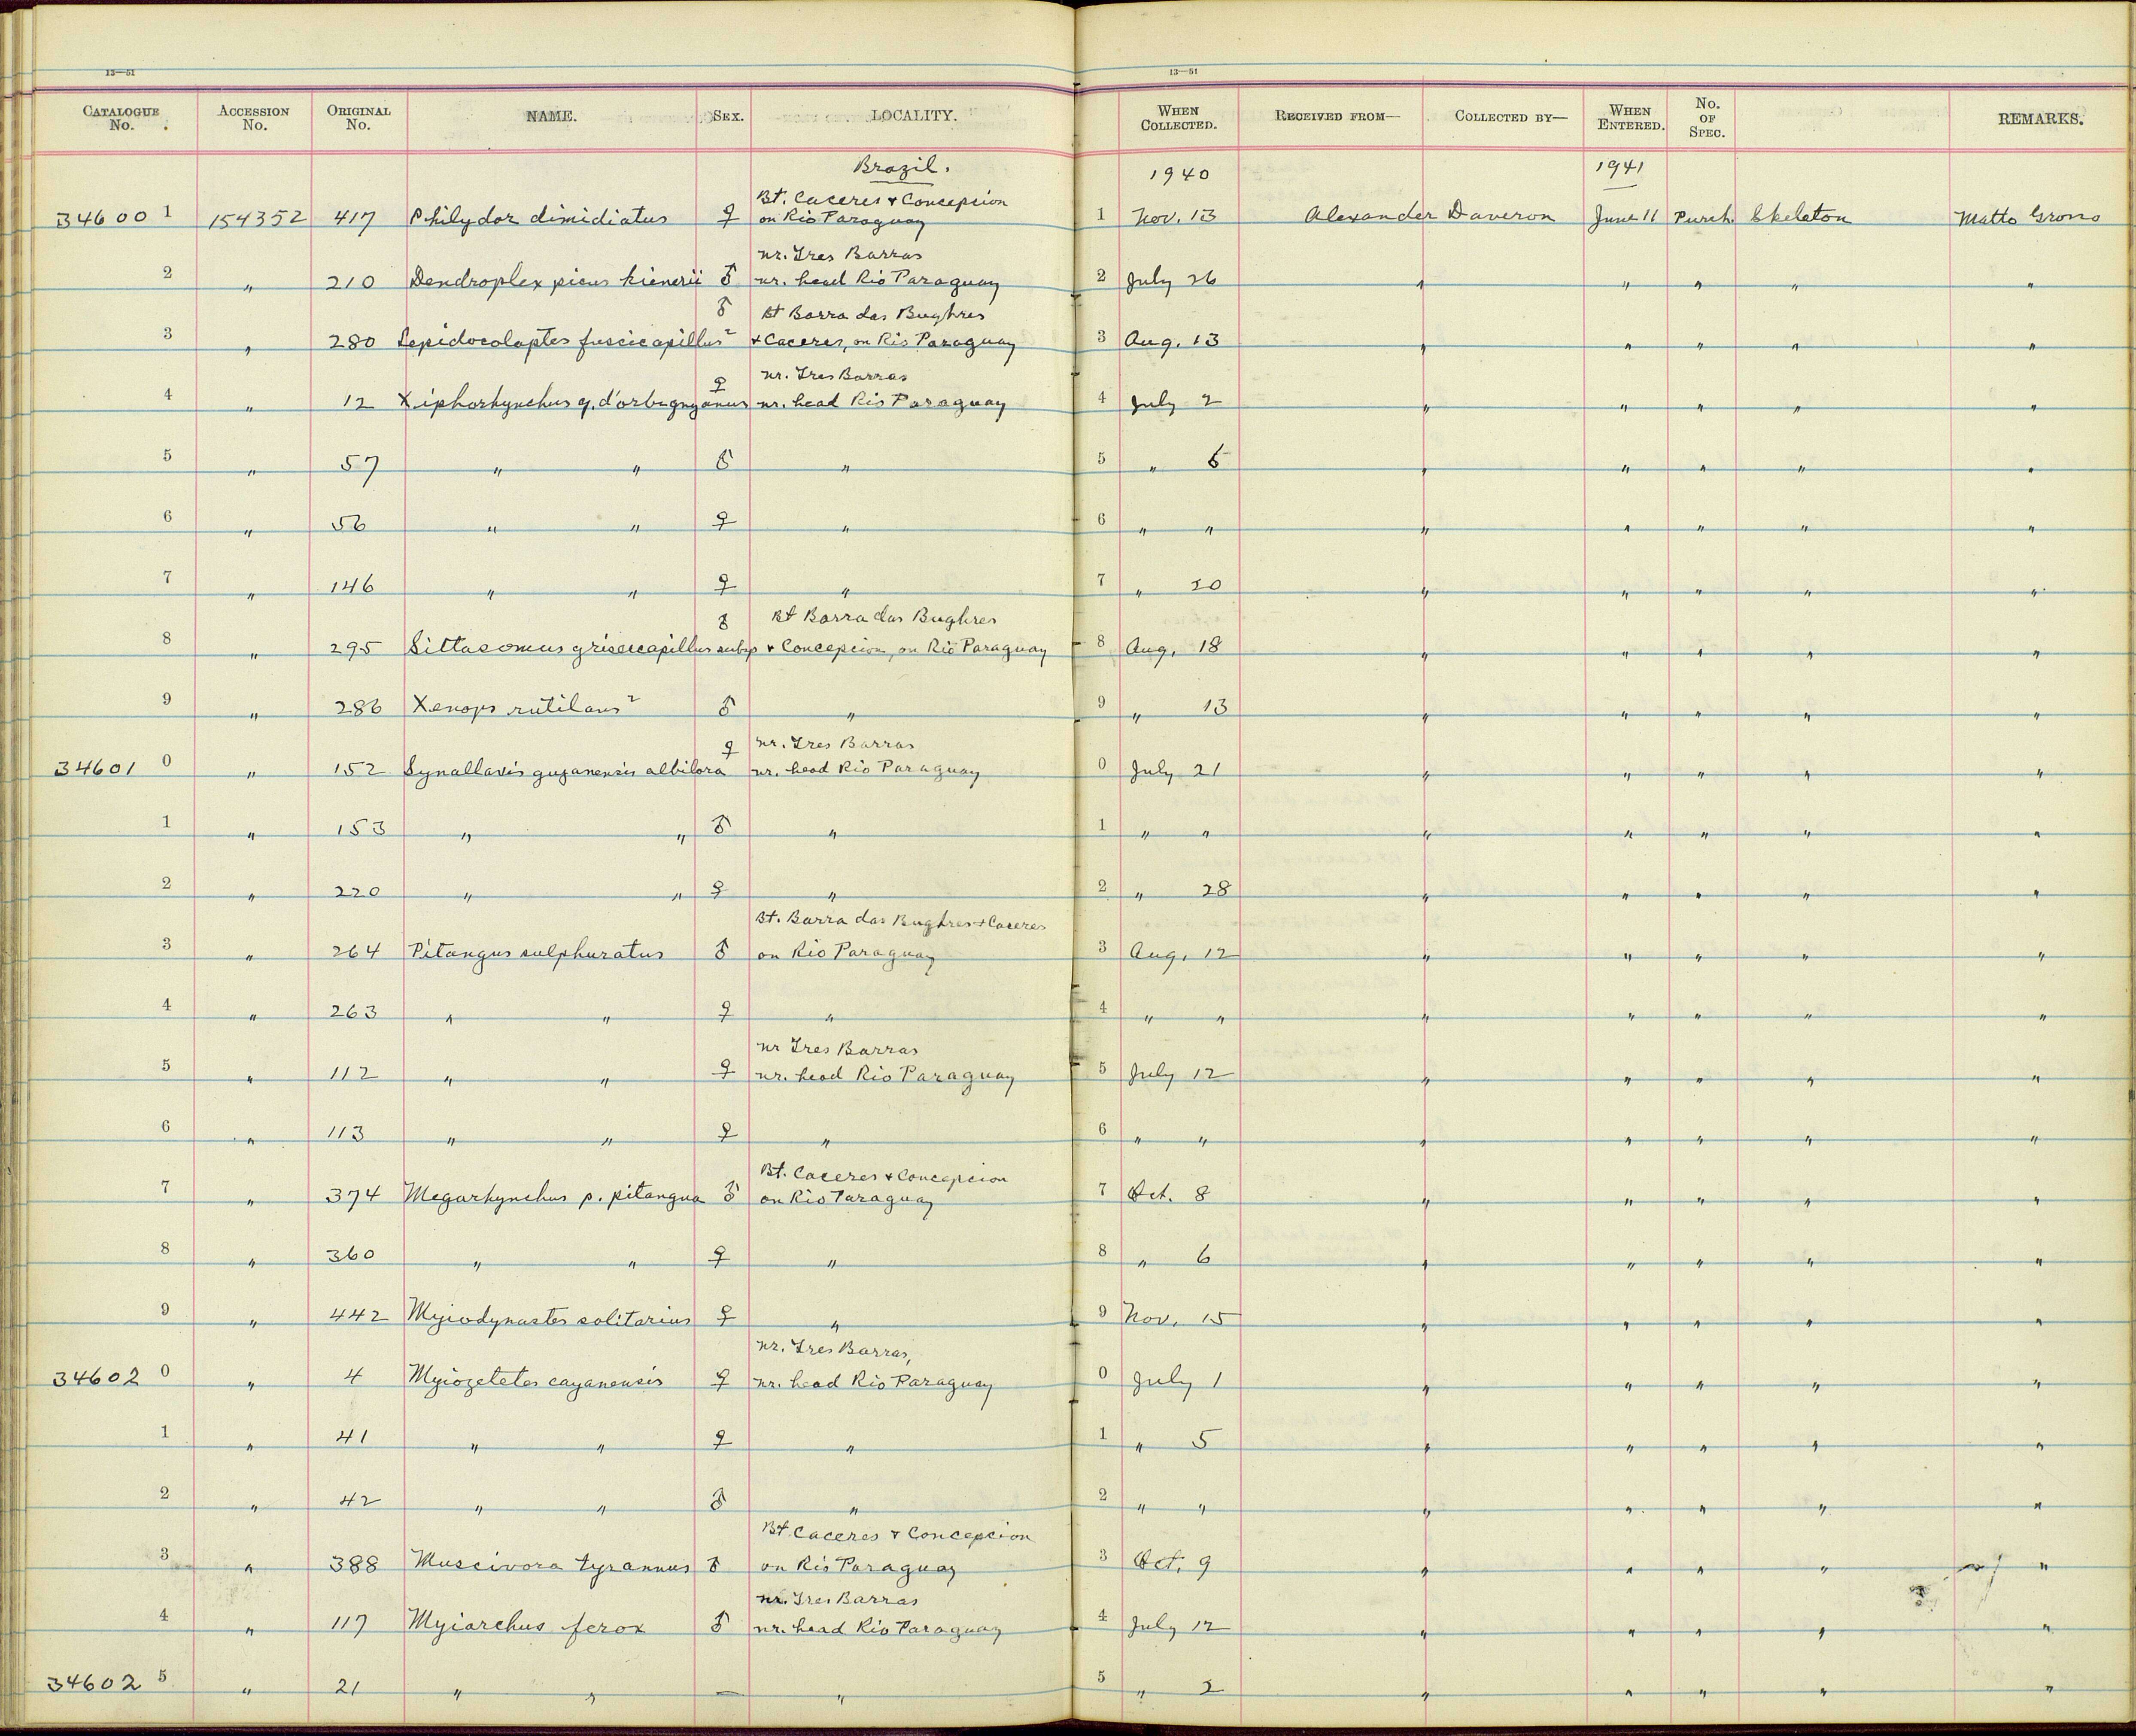 13—51
13—51
CATALOGUE No. ACCESSION No. ORIGINAL No. NAME. SEX. LOCALITY. WHEN COLLECTED. RECEIVED FROM— COLLECTED BY— WHEN ENTERED. No. OF SPEC. REMARKS.
Brazil. 1940 1941
Bt. Caceres & Concepcion
34600 1 154352 417 Philydor dimidiatus ♀ on Rio Paraguay 1 Nov. 13 Alexander Daveron June 11 Purch. Skeleton Matto Grosso
nr. Tres Barras
2 " 210 Dendroplex picus kienerii ♂ nr. head Rio Paraguay 2 July 26 " " " " "
♂ Bt Barra das Bughres
3 " 280 Lepidocolaptes fuscicapillus ² & Caceres, on Rio Paraguay 3 Aug. 13 " " " " "
♀ nr. Tres Barras
4 " 12 Xiphorhynchus g. d'orbignyanus nr. head Rio Paraguay 4 July 2 " " " " "
5 " 57 " " ♂ " 5 " 6 " " " " "
6 " 56 " " ♀ " 6 " " " " " " "
7 " 146 " " ♀ " 7 " 20 " " " " "
♂ Bt Barra das Bughres
8 " 295 Sittasomus griseicapillus subsp & Concepcion, on Rio Paraguay 8 Aug. 18 " " " " "
9 " 286 Xenops rutilans ² ♂ " 9 " 13 " " " " "
♀ nr. Tres Barras
34601 0 " 152 Synallaxis guyanensis albilora nr. head Rio Paraguay 0 July 21 " " " " "
1 " 153 " " ♂ " 1 " " " " " " "
2 " 220 " " ♀ " 2 " 28 " " " " "
Bt. Barra das Bughres & Caceres
3 " 264 Pitangus sulphuratus ♂ on Rio Paraguay 3 Aug. 12 " " " " "
4 " 263 " " ♀ " 4 " " " " " " "
nr Tres Barras
5 " 112 " " ♀ nr. head Rio Paraguay 5 July 12 " " " " "
6 " 113 " " ♀ " 6 " " " " " " "
Bt. Caceres & Concepcion
7 " 374 Megarhynchus p. pitangua ♂ on Rio Paraguay 7 Oct. 8 " " " " "
8 " 360 " " ♀ " 8 " 6 " " " " "
9 " 442 Myiodynastes solitarius ♀ " 9 Nov. 15 " " " " "
nr. Tres Barras,
34602 0 " 4 Myiozetetes cayanensis ♀ nr. head Rio Paraguay 0 July 1 " " " " "
1 " 41 " " ♀ " 1 " 5 " " " " "
2 " 42 " " ♂ " 2 " " " " " " "
Bt. Caceres & Concepcion
3 " 388 Muscivora tyrannus ♂ on Rio Paraguay 3 Oct. 9 " " " " "
nr. Tres Barras
4 " 117 Myiarchus ferox ♂ nr. head Rio Paraguay 4 July 12 " " " " "
34602 5 " 21 " " — " 5 " 2 " " " " "